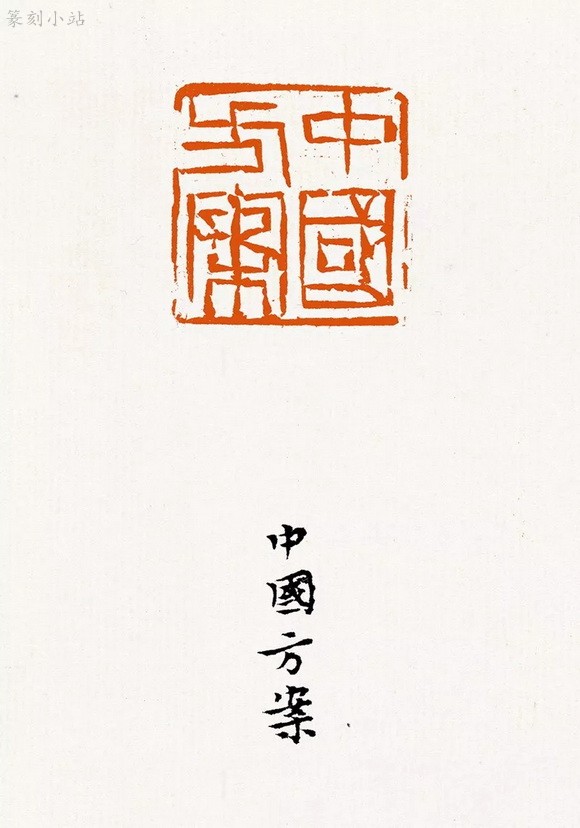 篆刻小站
中國方案
中國方案